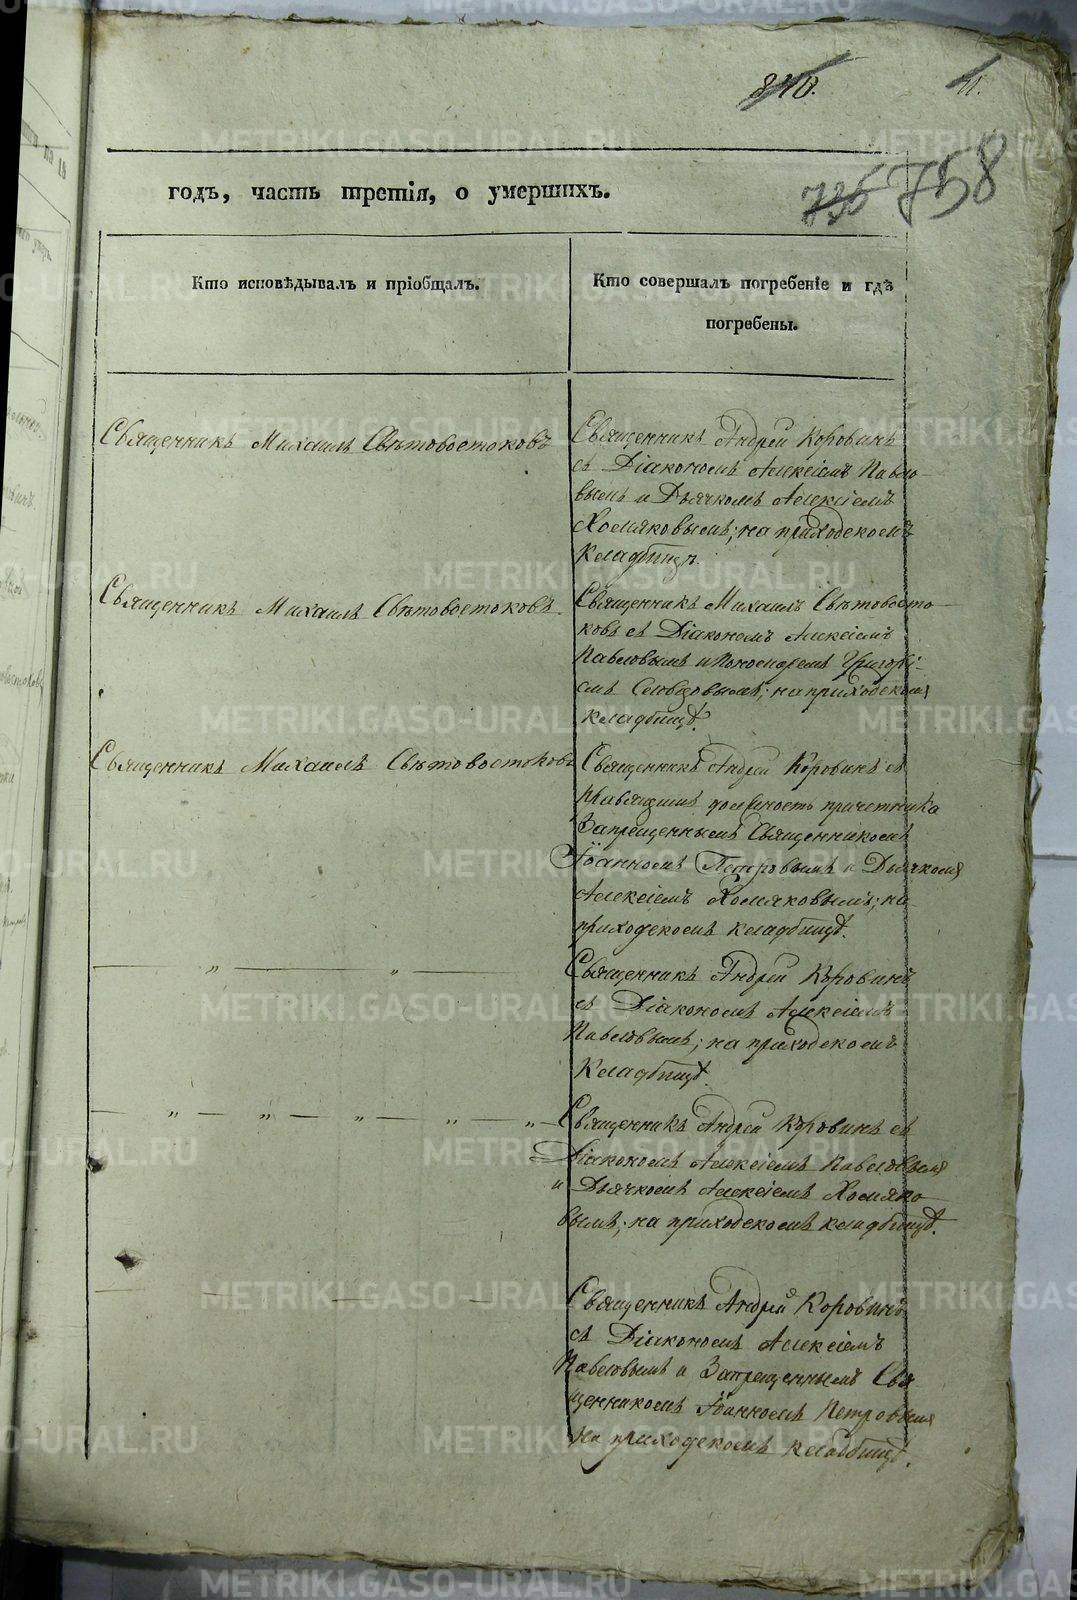 840. 11.
годъ, часть третія, о умершихъ.
735 758
Кто исповѣдывалъ и пріобщалъ.
Кто совершалъ погребеніе и гдѣ
погребены.
Священникъ Михаилъ Свѣтовостоковъ
Священникъ Андрей Коровинъ
съ Діакономъ Алексіемъ Павло-
вымъ и Дьячкомъ Алексіемъ
Хомяковымъ; на приходскомъ
кладбищѣ.
Священникъ Михаилъ Свѣтовостоковъ
Священникъ Михаилъ Свѣтовосто-
ковъ съ Діакономъ Алексіемъ
Павловымъ и Пономаремъ Григорі-
емъ Словцовымъ; на приходскомъ
кладбищѣ.
Священникъ Михаилъ Свѣтовостоковъ
Священникъ Андрей Коровинъ съ
правящимъ должность причетника
Запрещеннымъ Священникомъ
Іоанномъ Петровымъ и Дьячкомъ
Алексіемъ Хомяковымъ; на
приходскомъ кладбищѣ.
— „ — „ —
Священникъ Андрей Коровинъ
съ Діакономъ Алексіемъ
Павловымъ; на приходскомъ
кладбищѣ.
— „ — „ — „ — „ — „ —
Священникъ Андрей Коровинъ съ
Діакономъ Алексіемъ Павловымъ
и Дьячкомъ Алексіемъ Хомяко-
вымъ; на приходскомъ кладбищѣ.
Священникъ Андрей Коровинъ
съ Діакономъ Алексіемъ
Павловымъ и Запрещеннымъ Свя-
щенникомъ Іоанномъ Петровымъ
на приходскомъ кладбищѣ.
METRIKI.GASO-URAL.RU